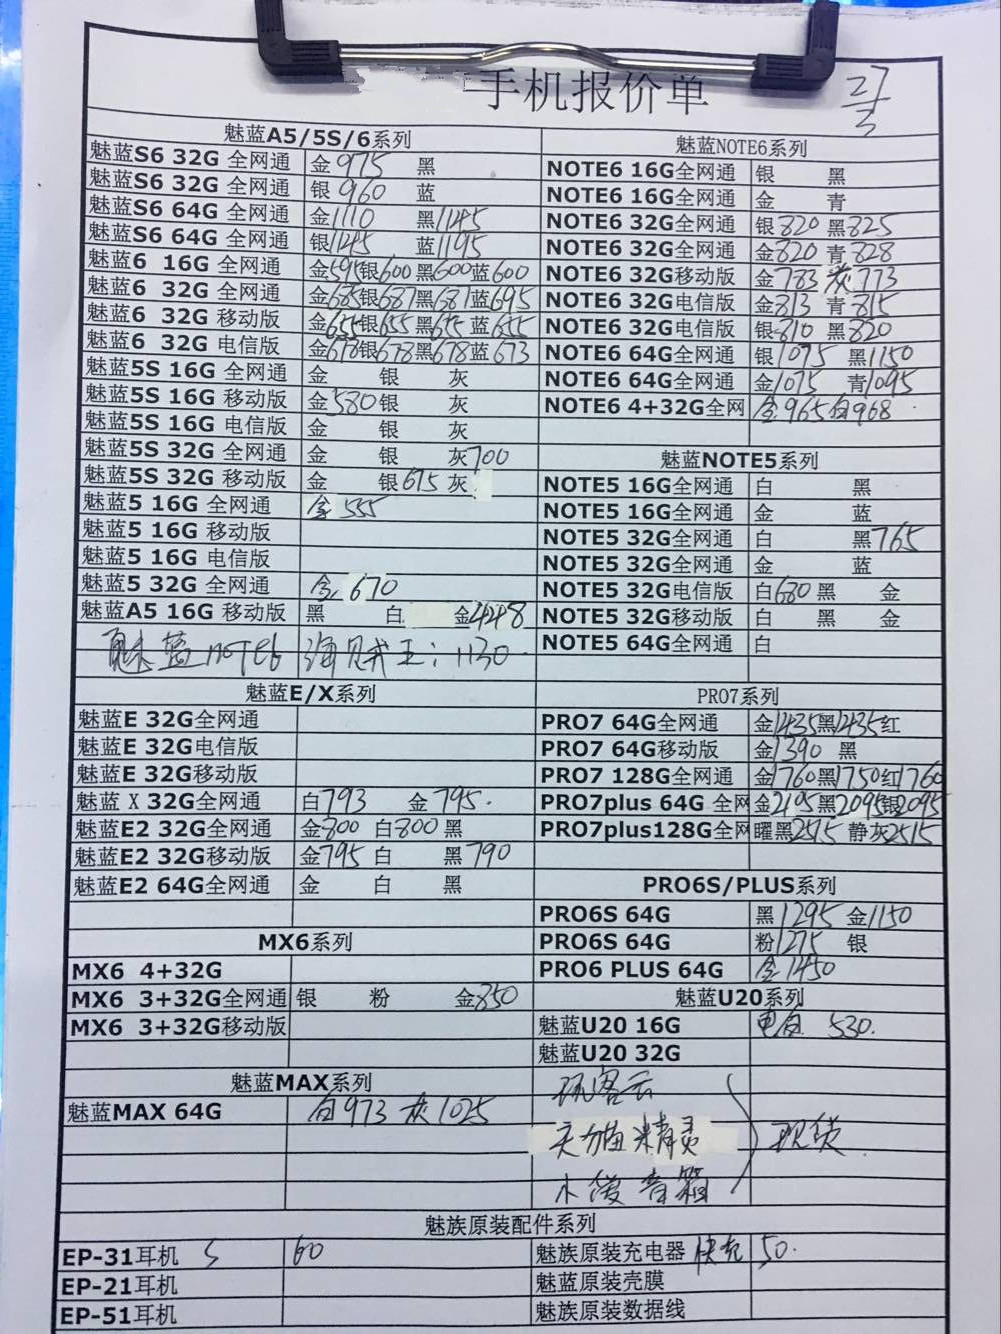 手机报价单
27/3
魅蓝A5/5S/6系列
魅蓝S6 32G 全网通 金975 黑
魅蓝S6 32G 全网通 银960 蓝
魅蓝S6 64G 全网通 金1110 黑1145
魅蓝S6 64G 全网通 银1145 蓝1195
魅蓝6 16G 全网通 金595银600黑600蓝600
魅蓝6 32G 全网通 金685银687黑681蓝695
魅蓝6 32G 移动版 金655银655黑655蓝655
魅蓝6 32G 电信版 金678银678黑678蓝673
魅蓝5S 16G 全网通 金 银 灰
魅蓝5S 16G 移动版 金580银 灰
魅蓝5S 16G 电信版 金 银 灰
魅蓝5S 32G 全网通 金 银 灰700
魅蓝5S 32G 移动版 金 银675灰
魅蓝5 16G 全网通 金555
魅蓝5 16G 移动版
魅蓝5 16G 电信版
魅蓝5 32G 全网通 金670
魅蓝A5 16G 移动版 黑 白 金448
魅蓝note6 海贼王：1130
魅蓝E/X系列
魅蓝E 32G全网通
魅蓝E 32G电信版
魅蓝E 32G移动版
魅蓝 X 32G全网通 白793 金795.
魅蓝E2 32G全网通 金800 白800黑
魅蓝E2 32G移动版 金795白 黑790
魅蓝E2 64G全网通 金 白 黑
MX6系列
MX6 4+32G
MX6 3+32G全网通 银 粉 金850
MX6 3+32G移动版
魅蓝MAX系列
魅蓝MAX 64G 白973 灰1025
魅蓝NOTE6系列
NOTE6 16G全网通 银 黑
NOTE6 16G全网通 金 青
NOTE6 32G全网通 银820 黑825
NOTE6 32G全网通 金820 青828
NOTE6 32G移动版 金783 灰773
NOTE6 32G电信版 金813 青815
NOTE6 32G电信版 银810 黑820
NOTE6 64G全网通 银1075 黑1150
NOTE6 64G全网通 金1075 青1095
NOTE6 4+32G全网 金965白968
魅蓝NOTE5系列
NOTE5 16G全网通 白 黑
NOTE5 16G全网通 金 蓝
NOTE5 32G全网通 白 黑765
NOTE5 32G全网通 金 蓝
NOTE5 32G电信版 白680黑 金
NOTE5 32G移动版 白 黑 金
NOTE5 64G全网通 白
PRO7系列
PRO7 64G全网通 金1435黑1435红
PRO7 64G移动版 金1390 黑
PRO7 128G全网通 金1760黑1750红1760
PRO7plus 64G 全网 金2195黑2095银2095
PRO7plus128G全网 曜黑2515 静灰2515
PRO6S/PLUS系列
PRO6S 64G 黑1295 金1150
PRO6S 64G 粉1275 银
PRO6 PLUS 64G 金1450
魅蓝U20系列
魅蓝U20 16G 电白 530.
魅蓝U20 32G
玩客云
天猫精灵 现货
小爱音箱
魅族原装配件系列
EP-31耳机 60
EP-21耳机
EP-51耳机
魅族原装充电器 快充 50.
魅蓝原装壳膜
魅族原装数据线